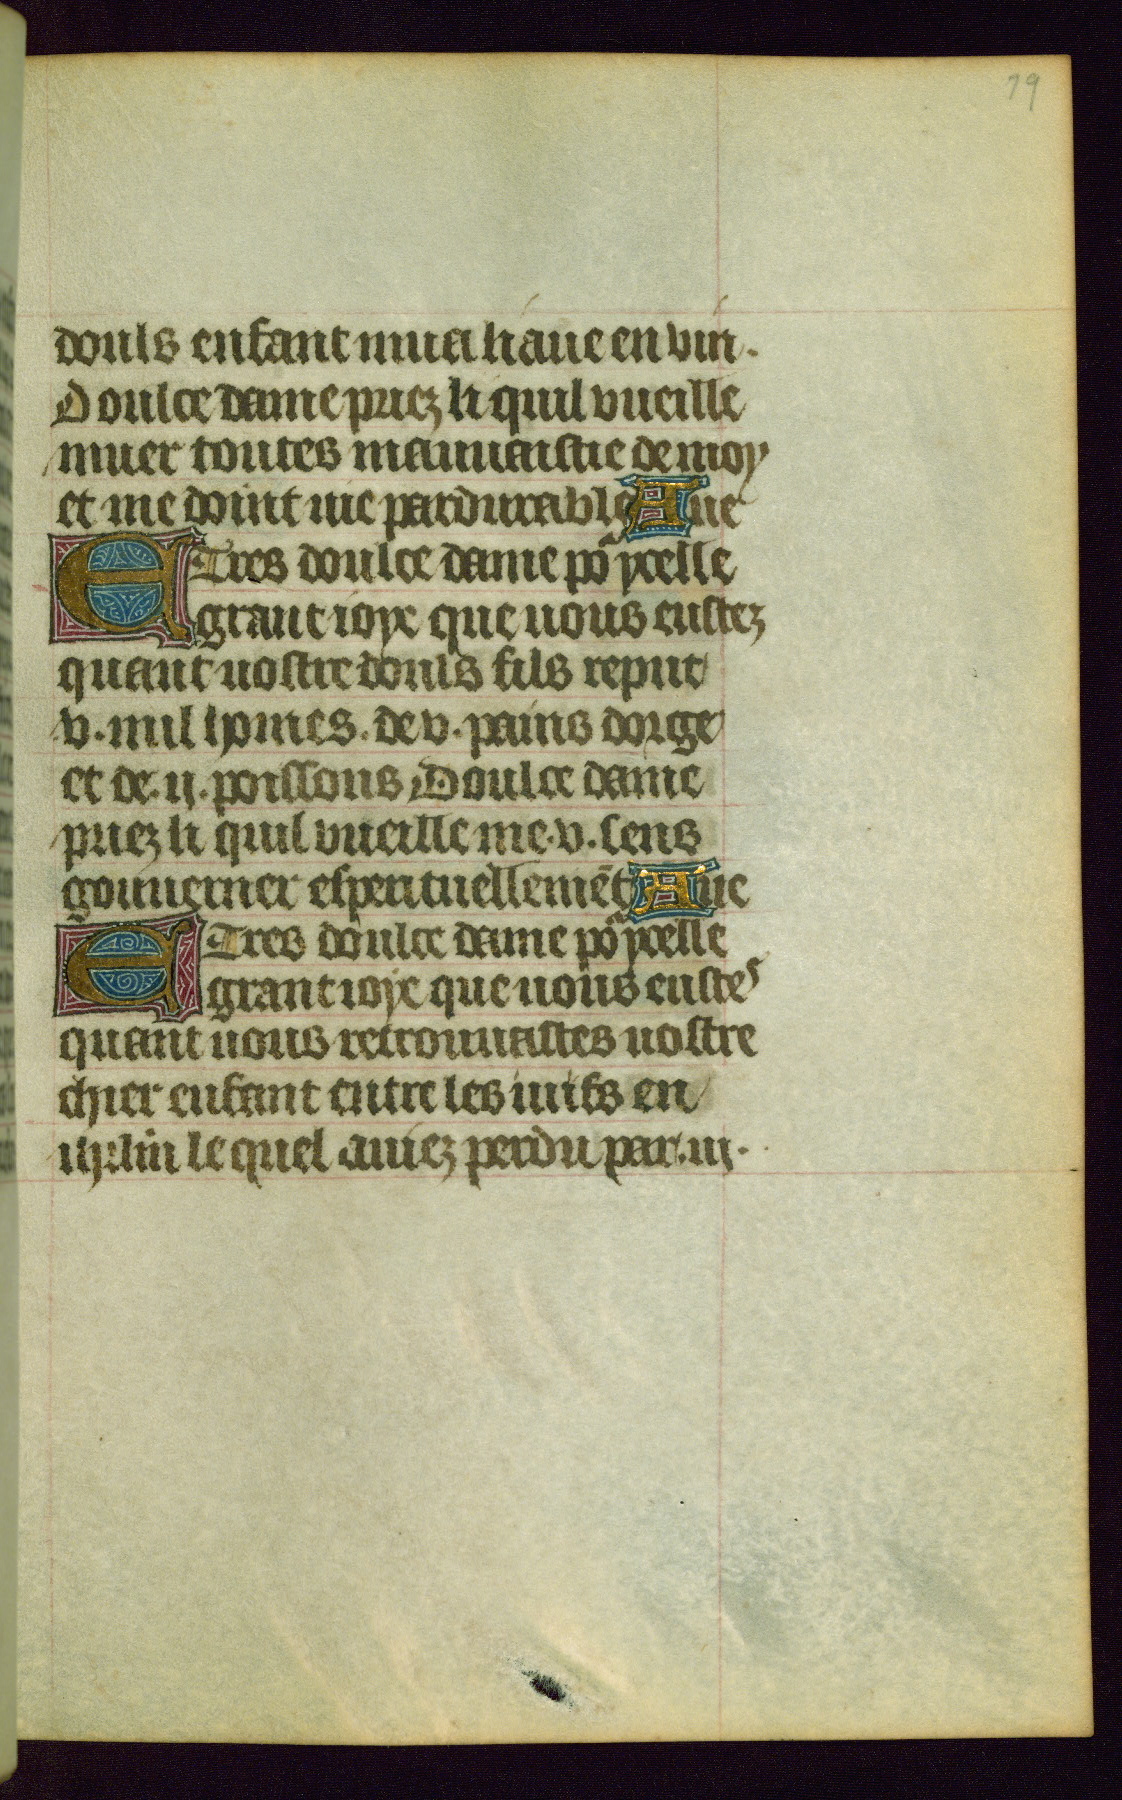 79
douls enfant mua li aue en vin.
Doulce dame priez li quil vueille
muer toutes mauuaistie de moy
et me doint vie pardurable Aue
E Tres doulce dame po᷑ ycelle
grant ioye que uous eustez
quant uostre douls fils reput
v. mil homes. de v. pains dorge
et de .ij. poissons Doulce dame
priez li quil vueille me .v. sens
gouuerner esperituellemēt Aue
E Tres doulce dame po᷑ ycelle
grant ioye que uous eustes
quant uous retrouuastes uostre
chier enfant entre les iuifs en
ihrlm̄ le quel auiez perdu par .iij.